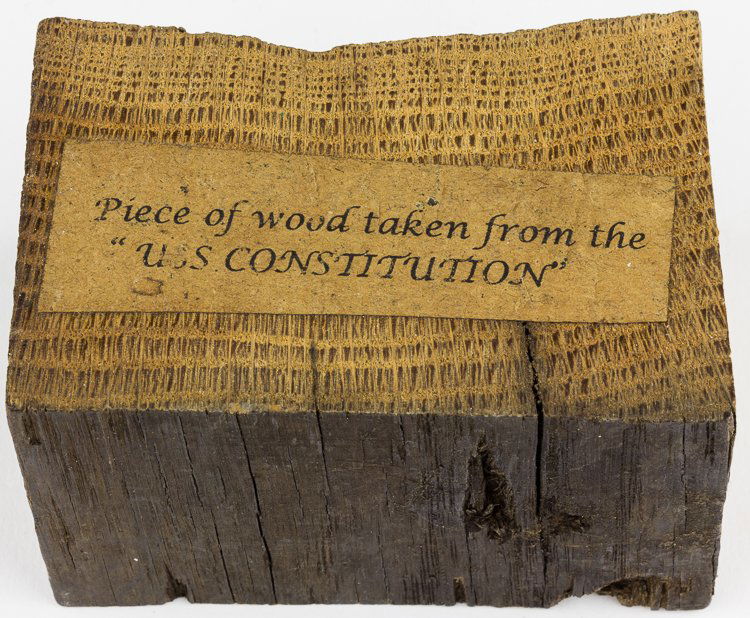 Piece of wood taken from the
“USS CONSTITUTION”